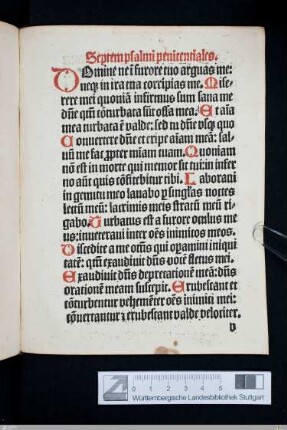 Septem psalmi penitentiales.
DOmine ne ĩ furore tuo arguas me:
neqȝ in ira tua corripias me. Mise-
rere mei quoniã infirmus sum sana me
dñe qm̃ cõturbata sũt ossa mea. Et aĩa
mea turbata ẽ valde: sed tu dñe vsqȝ quo
Conuertere dñe et eripe aĩam meã: sal-
uũ me fac ꝓpter mĩam tuam. Quoniam
nõ est in morte qui memor sit tui: in infer
no aũt quis cõfitebitur tibi. Laboraui
in gemitu meo lauabo ꝑ singlas noctes
lectũ meũ: lacrimis meis stratũ meũ ri-
gabo. Turbatus est a furore oculus me
us: inueteraui inter oẽs inimicos meos.
Discedite a me oẽs qui oꝑamini iniqui
tatẽ: qm̃ exaudiuit dñs vocẽ fletus mei.
Exaudiuit dñs deprecationẽ meã: dñs
orationẽ meam suscepit. Erubescant et
cõturbentur vehemẽter oẽs inimici mei:
cõuertantur ⁊ erubescant valde velociter.
v
0 1 2 3 4 5
Württembergische Landesbibliothek Stuttgart